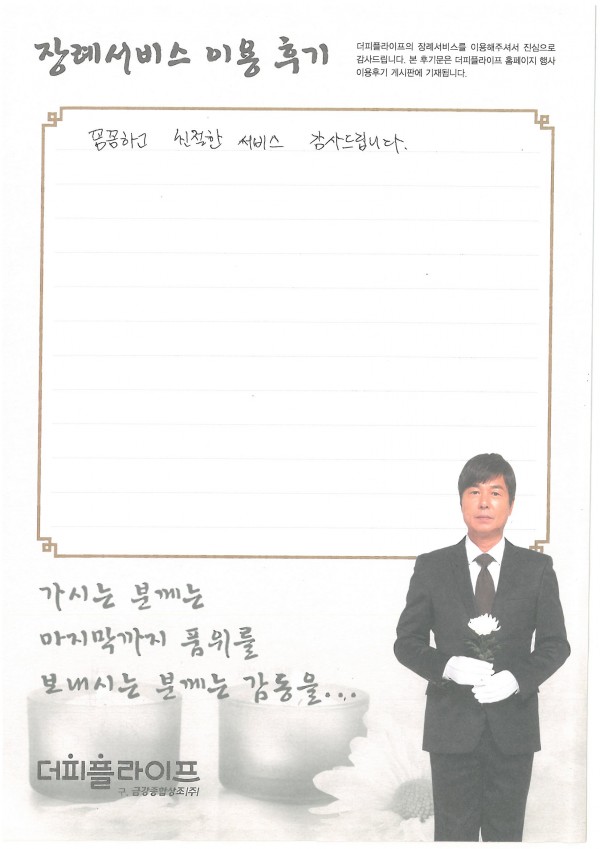 장례서비스 이용 후기
더피플라이프의 장례서비스를 이용해주셔서 진심으로
감사드립니다. 본 후기문은 더피플라이프 홈페이지 행사
이용후기 게시판에 기재됩니다.
꼼꼼하고 친절한 서비스 감사드립니다.
가시는 분께는
마지막까지 품위를
보내시는 분께는 감동을...
더피플라이프
구. 금강종합상조(주)